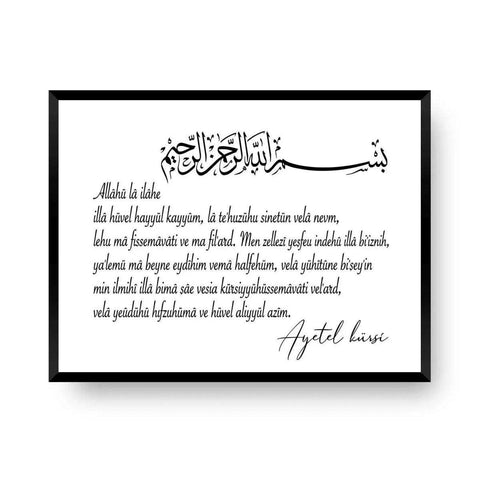 بسم الله الرحمن الرحيم
Allâhü lâ ilâhe
illâ hüvel hayyül kayyüm, lâ te'huzühu sinetün velâ nevm,
lehu mâ fissemâvâti ve ma fil'ard. Men zellezî yeşfeu indehû illâ bi'iznih,
ya'lemü mâ beyne eydîhim vemâ halfehüm, velâ yühîtûne bi'şey'in
min ilmihî illâ bimâ şâe vesia kürsiyyühüssemâvâti vel'ard,
velâ yeûdühû hıfzuhümâ ve hüvel aliyyül azîm.
Ayetel kürsî